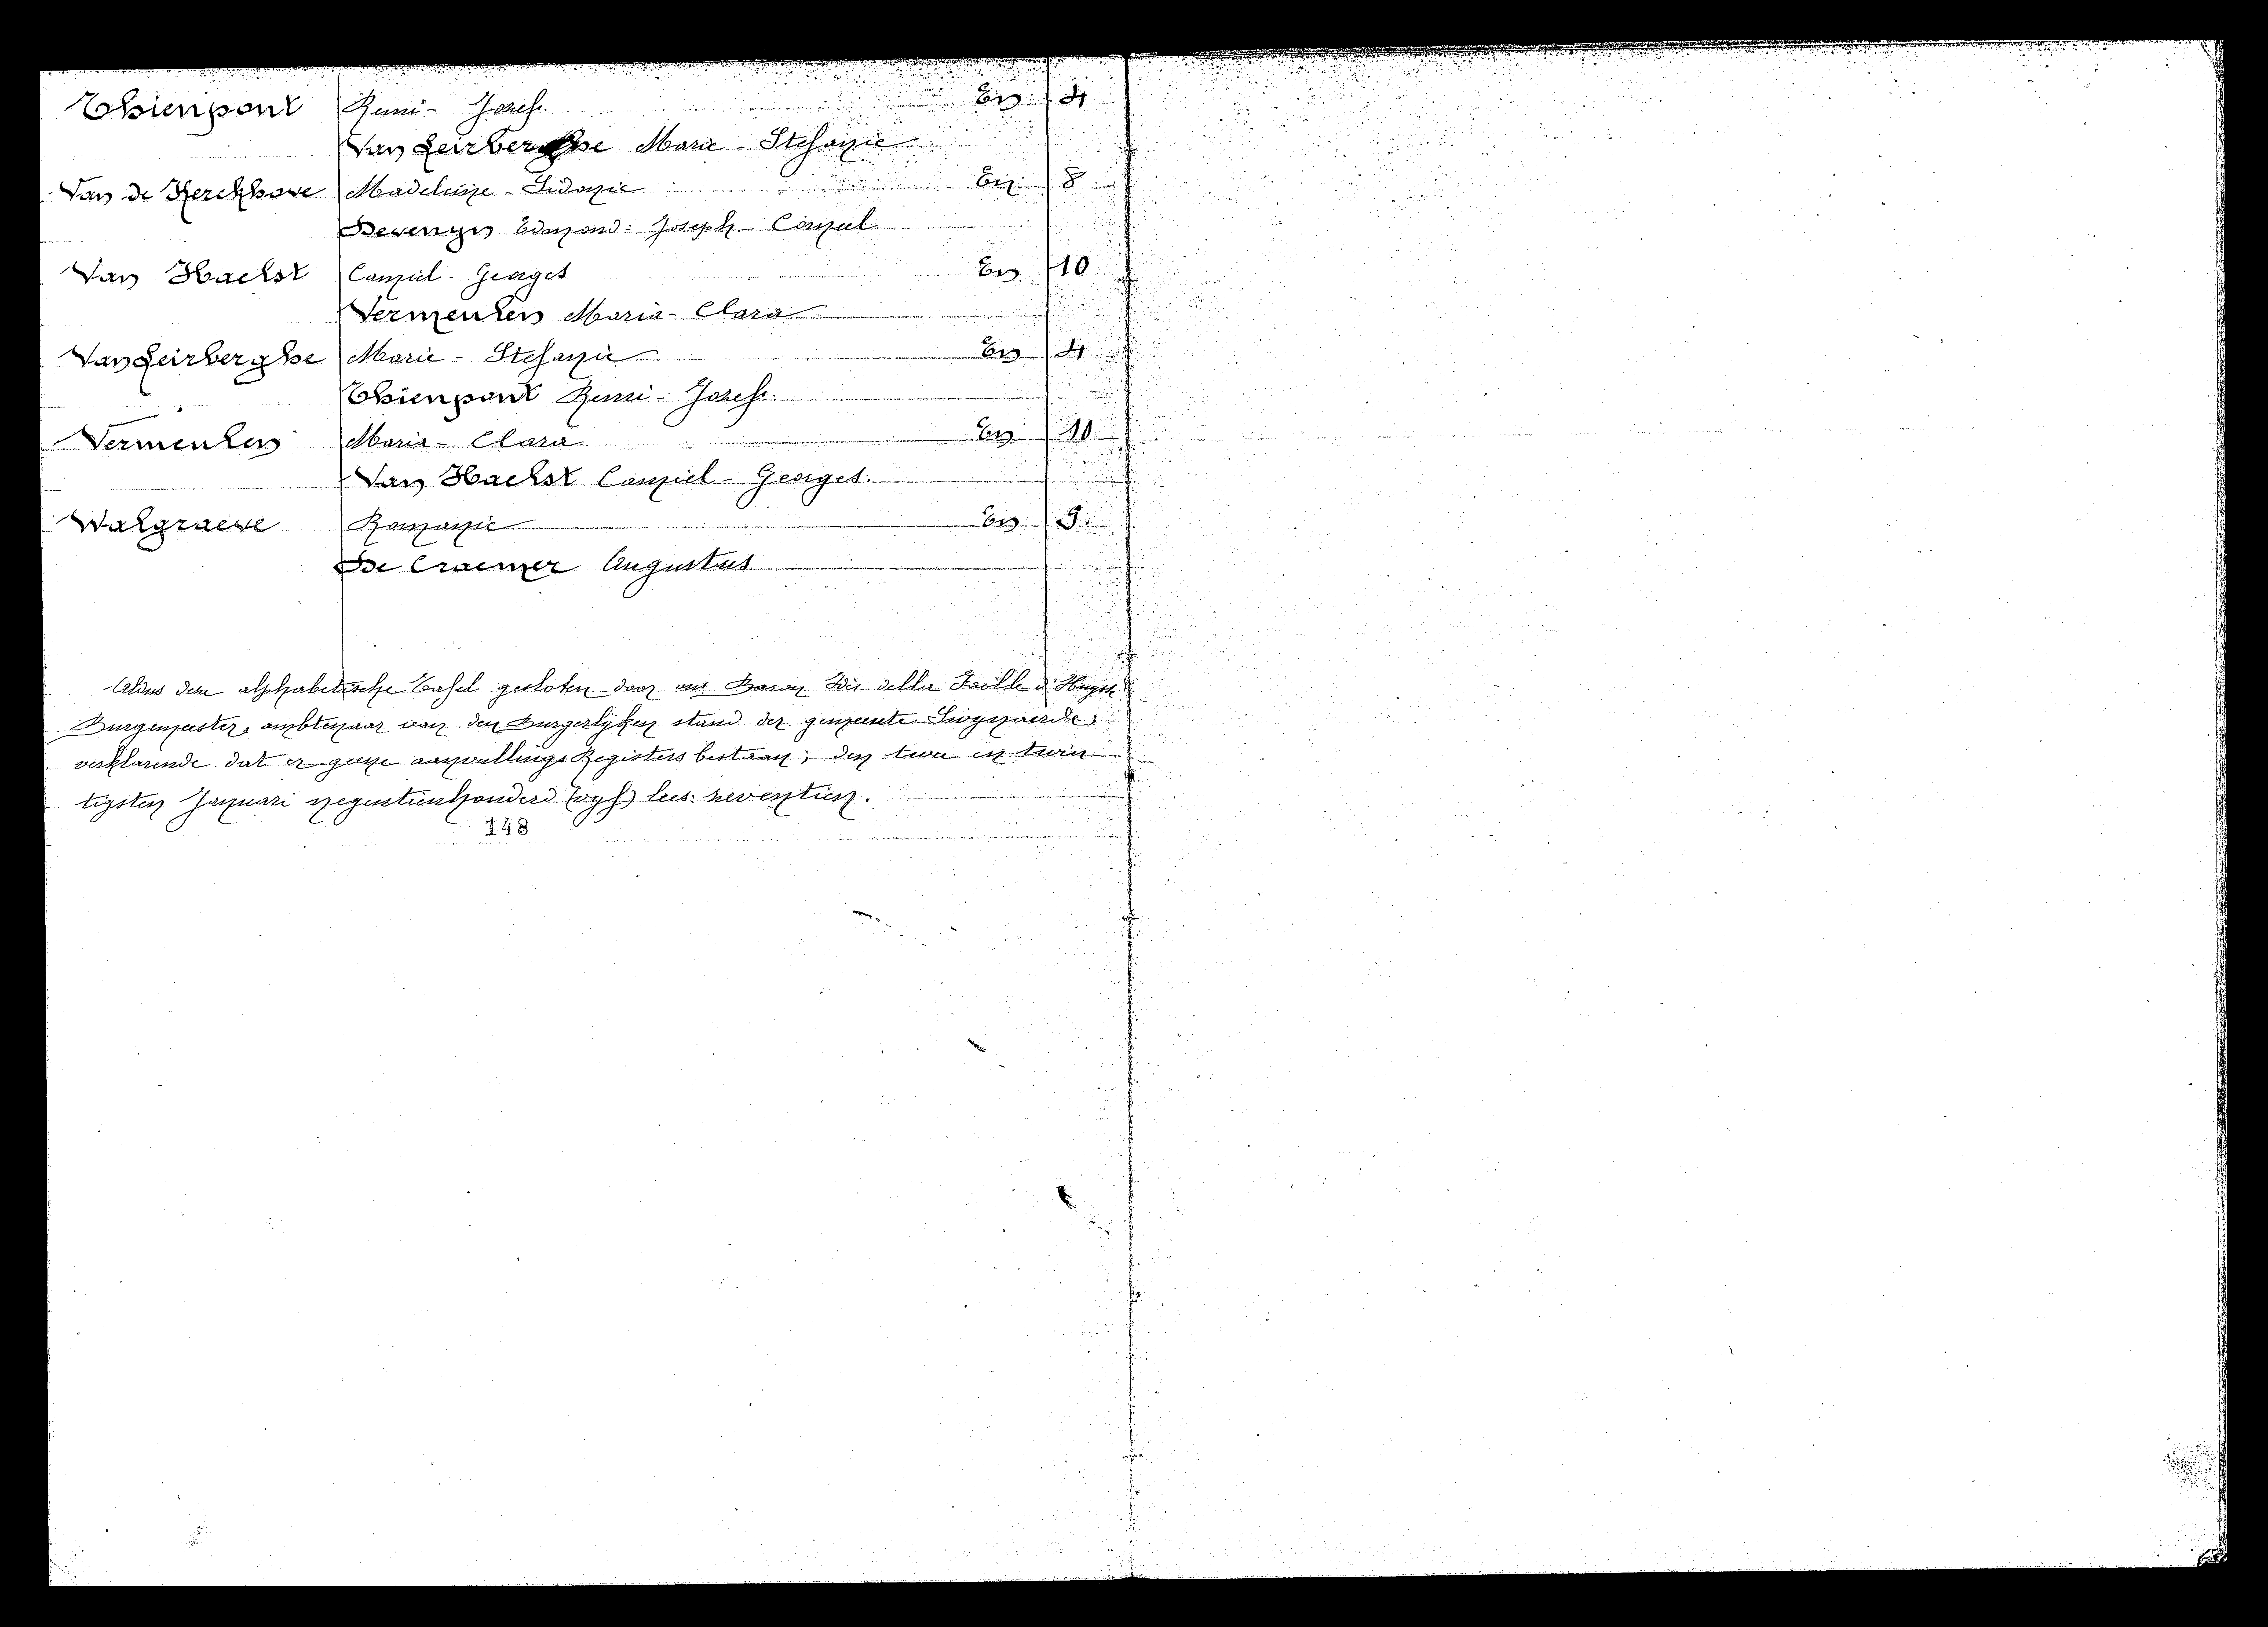 Thienpont Remi - Jozef. En 4
Van Leirberghe Marie - Stefanie
Van de Kerckhove Madeleine - Sidonie En 8
Devenyn Edmond - Joseph - Camiel
Van Haelst Camiel - Georges En 10
Vermeulen Maria - Clara
Van Leirberghe Marie - Stefanie En 4
Thienpont Remi - Jozef.
Vermeulen Maria - Clara En 10
Van Haelst Camiel - Georges.
Walgraeve Romanie En 9.
De Craemer Augustus
Aldus deze alphabetische Tafel gesloten door ons Baron della Faille d'Huysse
Burgemeester, ambtenaar van den Burgerlijken stand der gemeente Swynaerde;
verklarende dat er geene aanvullings Registers bestaan; den twee en twin
tigsten Januari negentienhonderd (vyf) lees: zeventien.
148